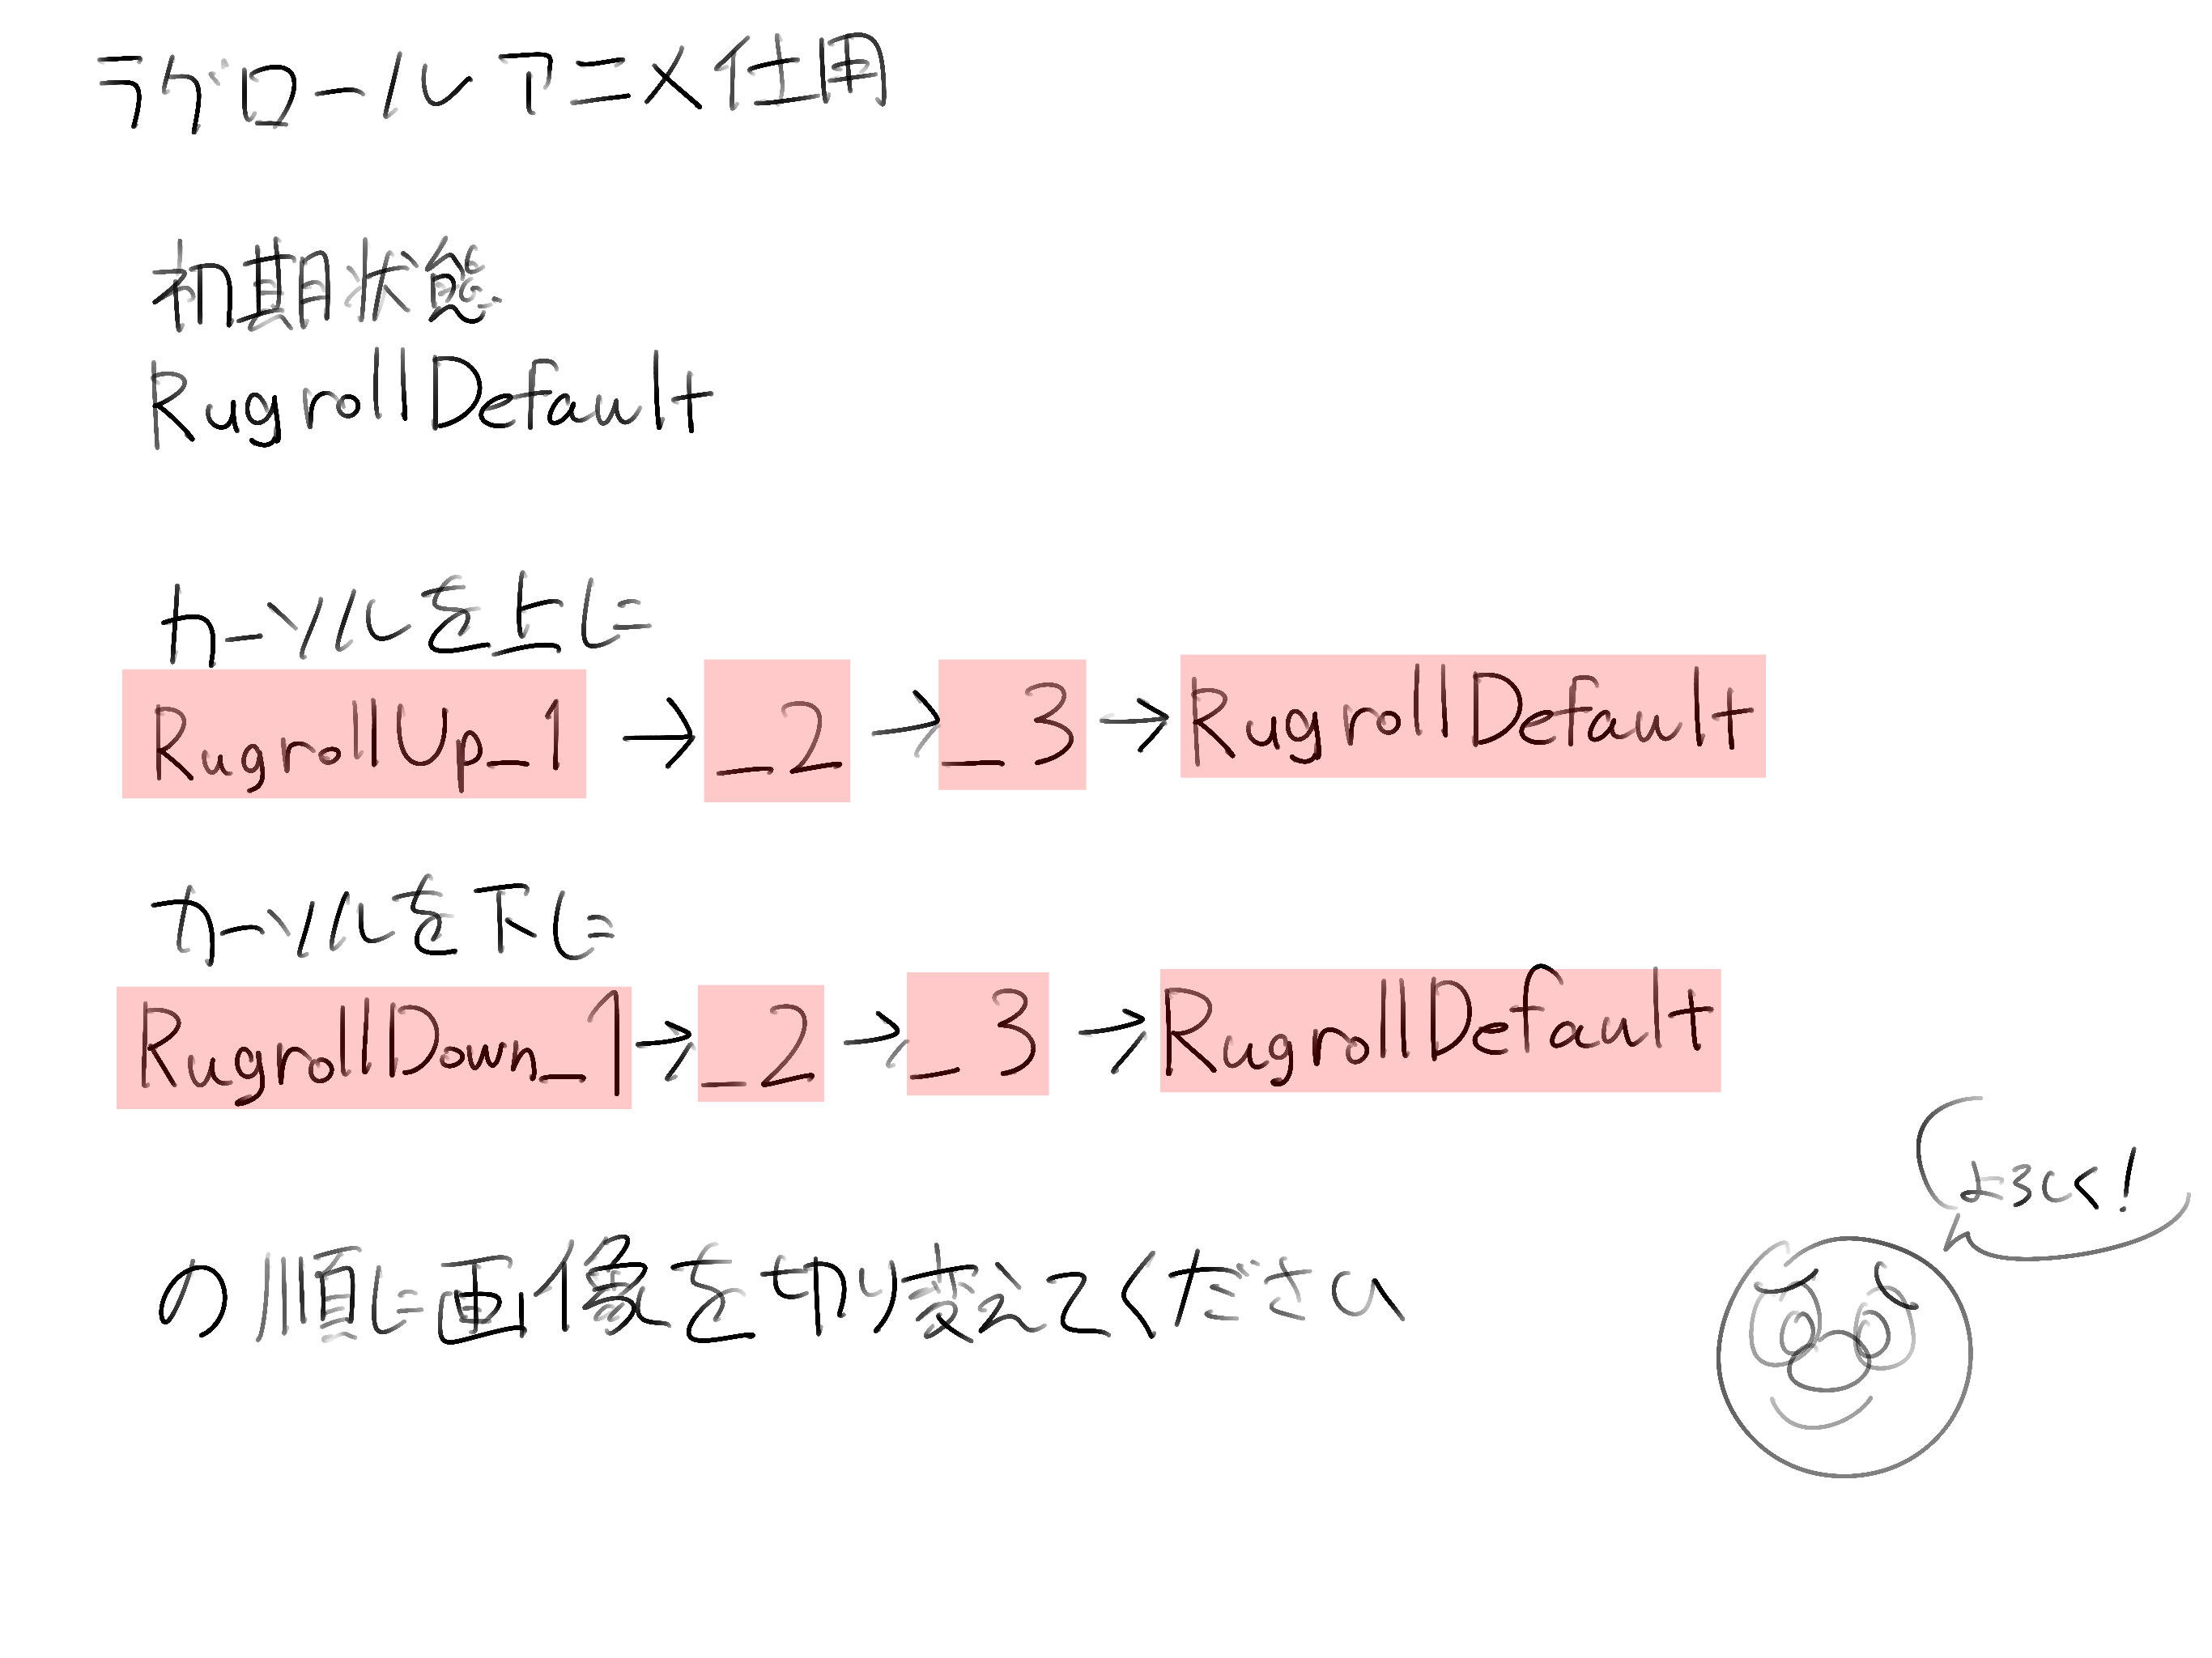 ラグロールアニメ仕用
初期状態
RugrollDefault
カーソルを上に
RugrollUp_1 → _2 → _3 → RugrollDefault
カーソルを下に
RugrollDown_1 → _2 → _3 → RugrollDefault
の順に画像を切り変えてください
よろしく!